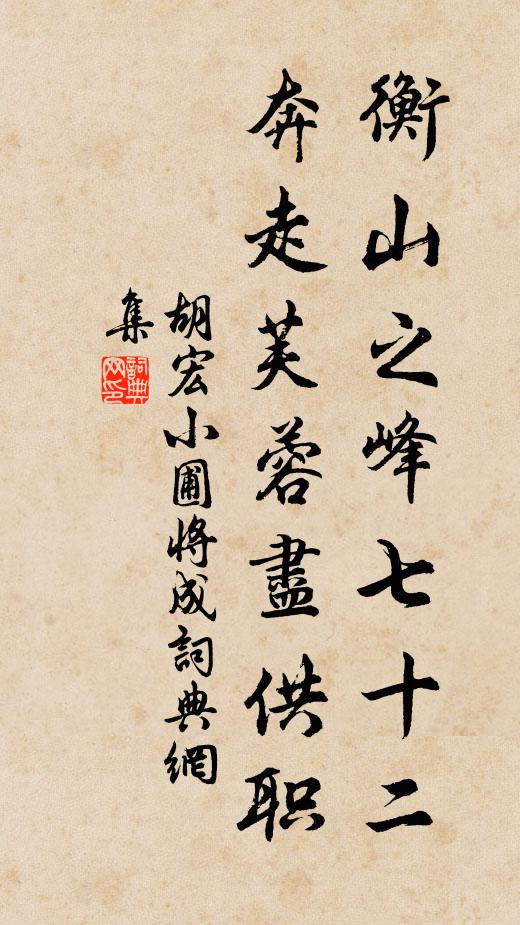 衡山之峰七十二
奔走芙蓉盡供职
胡宏小圃将成詞典網
集
詞典网印